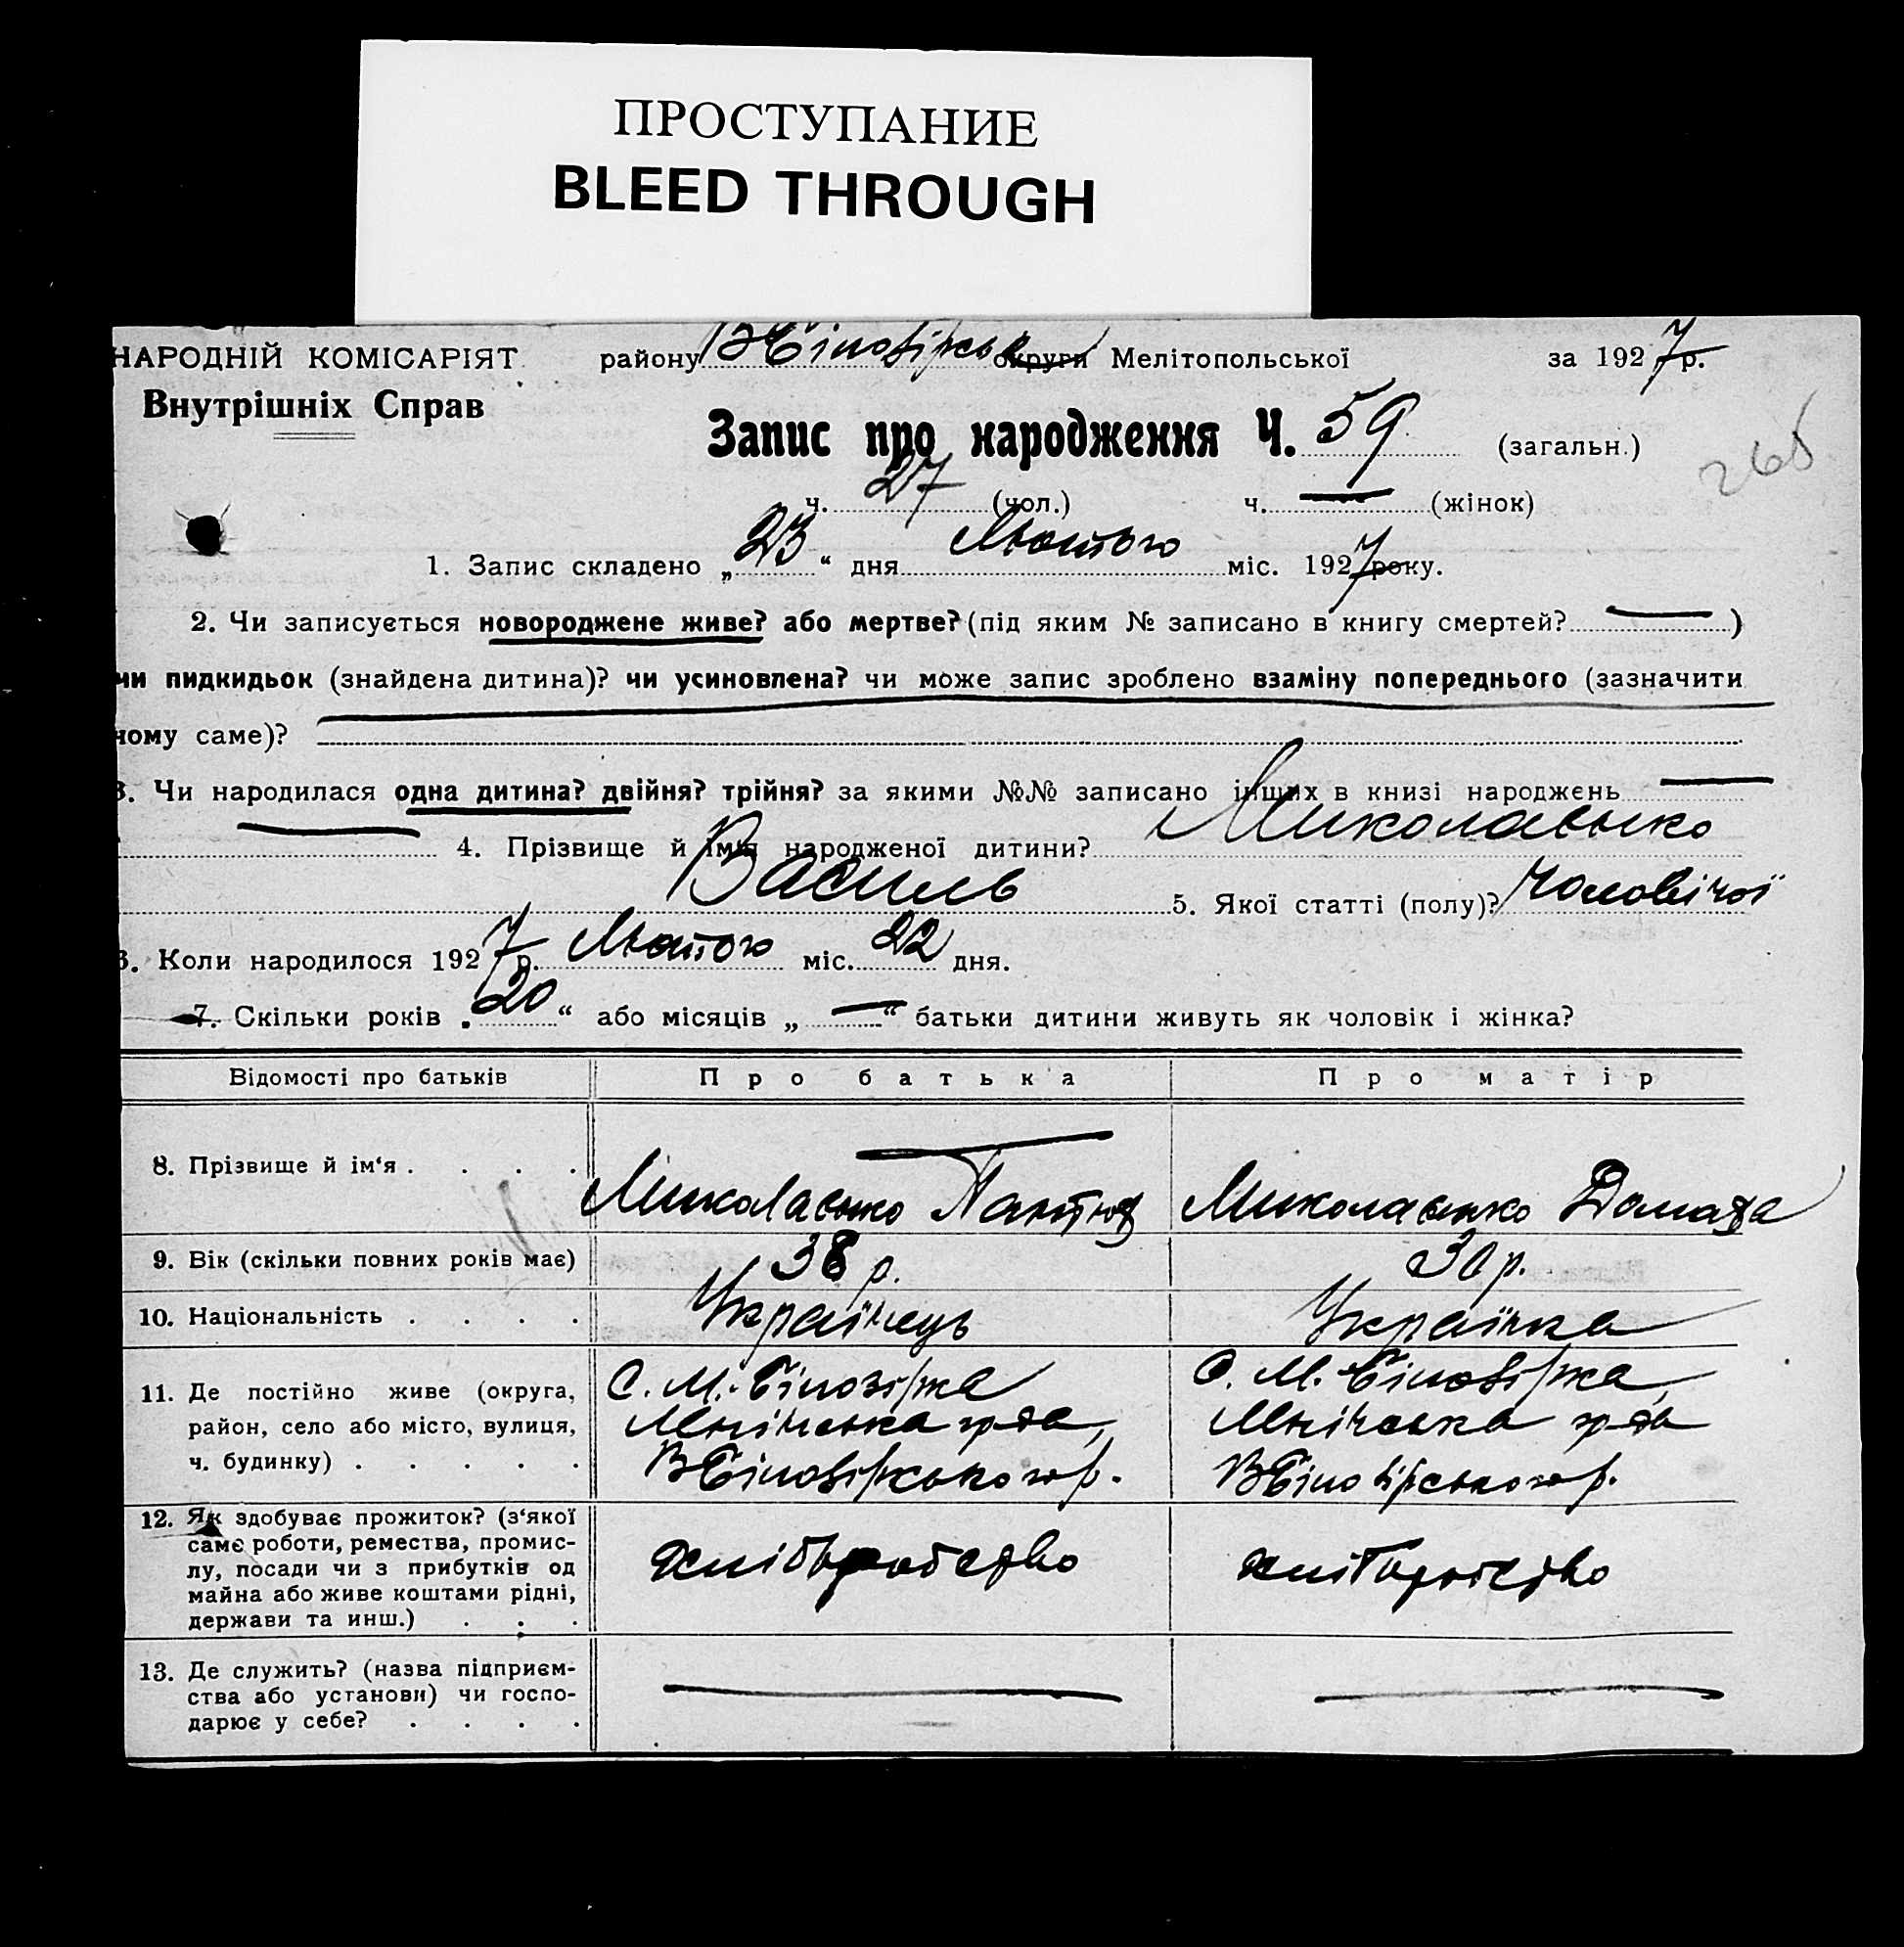 ПРОСТУПАНИЕ
BLEED THROUGH
НАРОДНІЙ КОМІСАРІЯТ району ВБілозірськ округи Мелітопольської за 1927 р.
Внутрішніх Справ
Запис про народження Ч. 59 (загальн.)
265
ч. 27 (чол.) ч. — (жінок)
1. Запис складено „23“ дня Лютого міс. 1927 року.
2. Чи записується новороджене живе? або мертве? (під яким № записано в книгу смертей? — )
чи пидкидьок (знайдена дитина)? чи усиновлена? чи може запис зроблено взаміну попереднього (зазначити
чому саме)?
3. Чи народилася одна дитина? двійня? трійня? за якими №№ записано інших в книзі народжень —
— 4. Прізвище й ім'я народженої дитини? Миколаєнко
Василь 5. Якої статті (полу)? Чоловічої
6. Коли народилося 1927 р. Лютого міс. 22 дня.
7. Скільки років „20“ або місяців „—“ батьки дитини живуть як чоловік і жінка?
Відомості про батьків Про батька Про матір
8. Прізвище й ім'я . . . . Миколаєнко Миколаєнко
9. Вік (скільки повних років має) 38 р. 30 р.
10. Національність . . . . Українець Українка
11. Де постійно живе (округа, С. М.-Білозірка С. М. Білозірка,
район, село або місто, вулиця,
ч. будинку) . . . . . ВБілозірського р. ВБілозірського р.
12. Як здобуває прожиток? (з'якої
саме роботи, ремества, промис-
лу, посади чи з прибутків од хліборобство хліборобство
майна або живе коштами рідні,
держави та инш.) . . .
13. Де служить? (назва підприєм-
ства або установи) чи госпо- — —
дарює у себе? . . . .